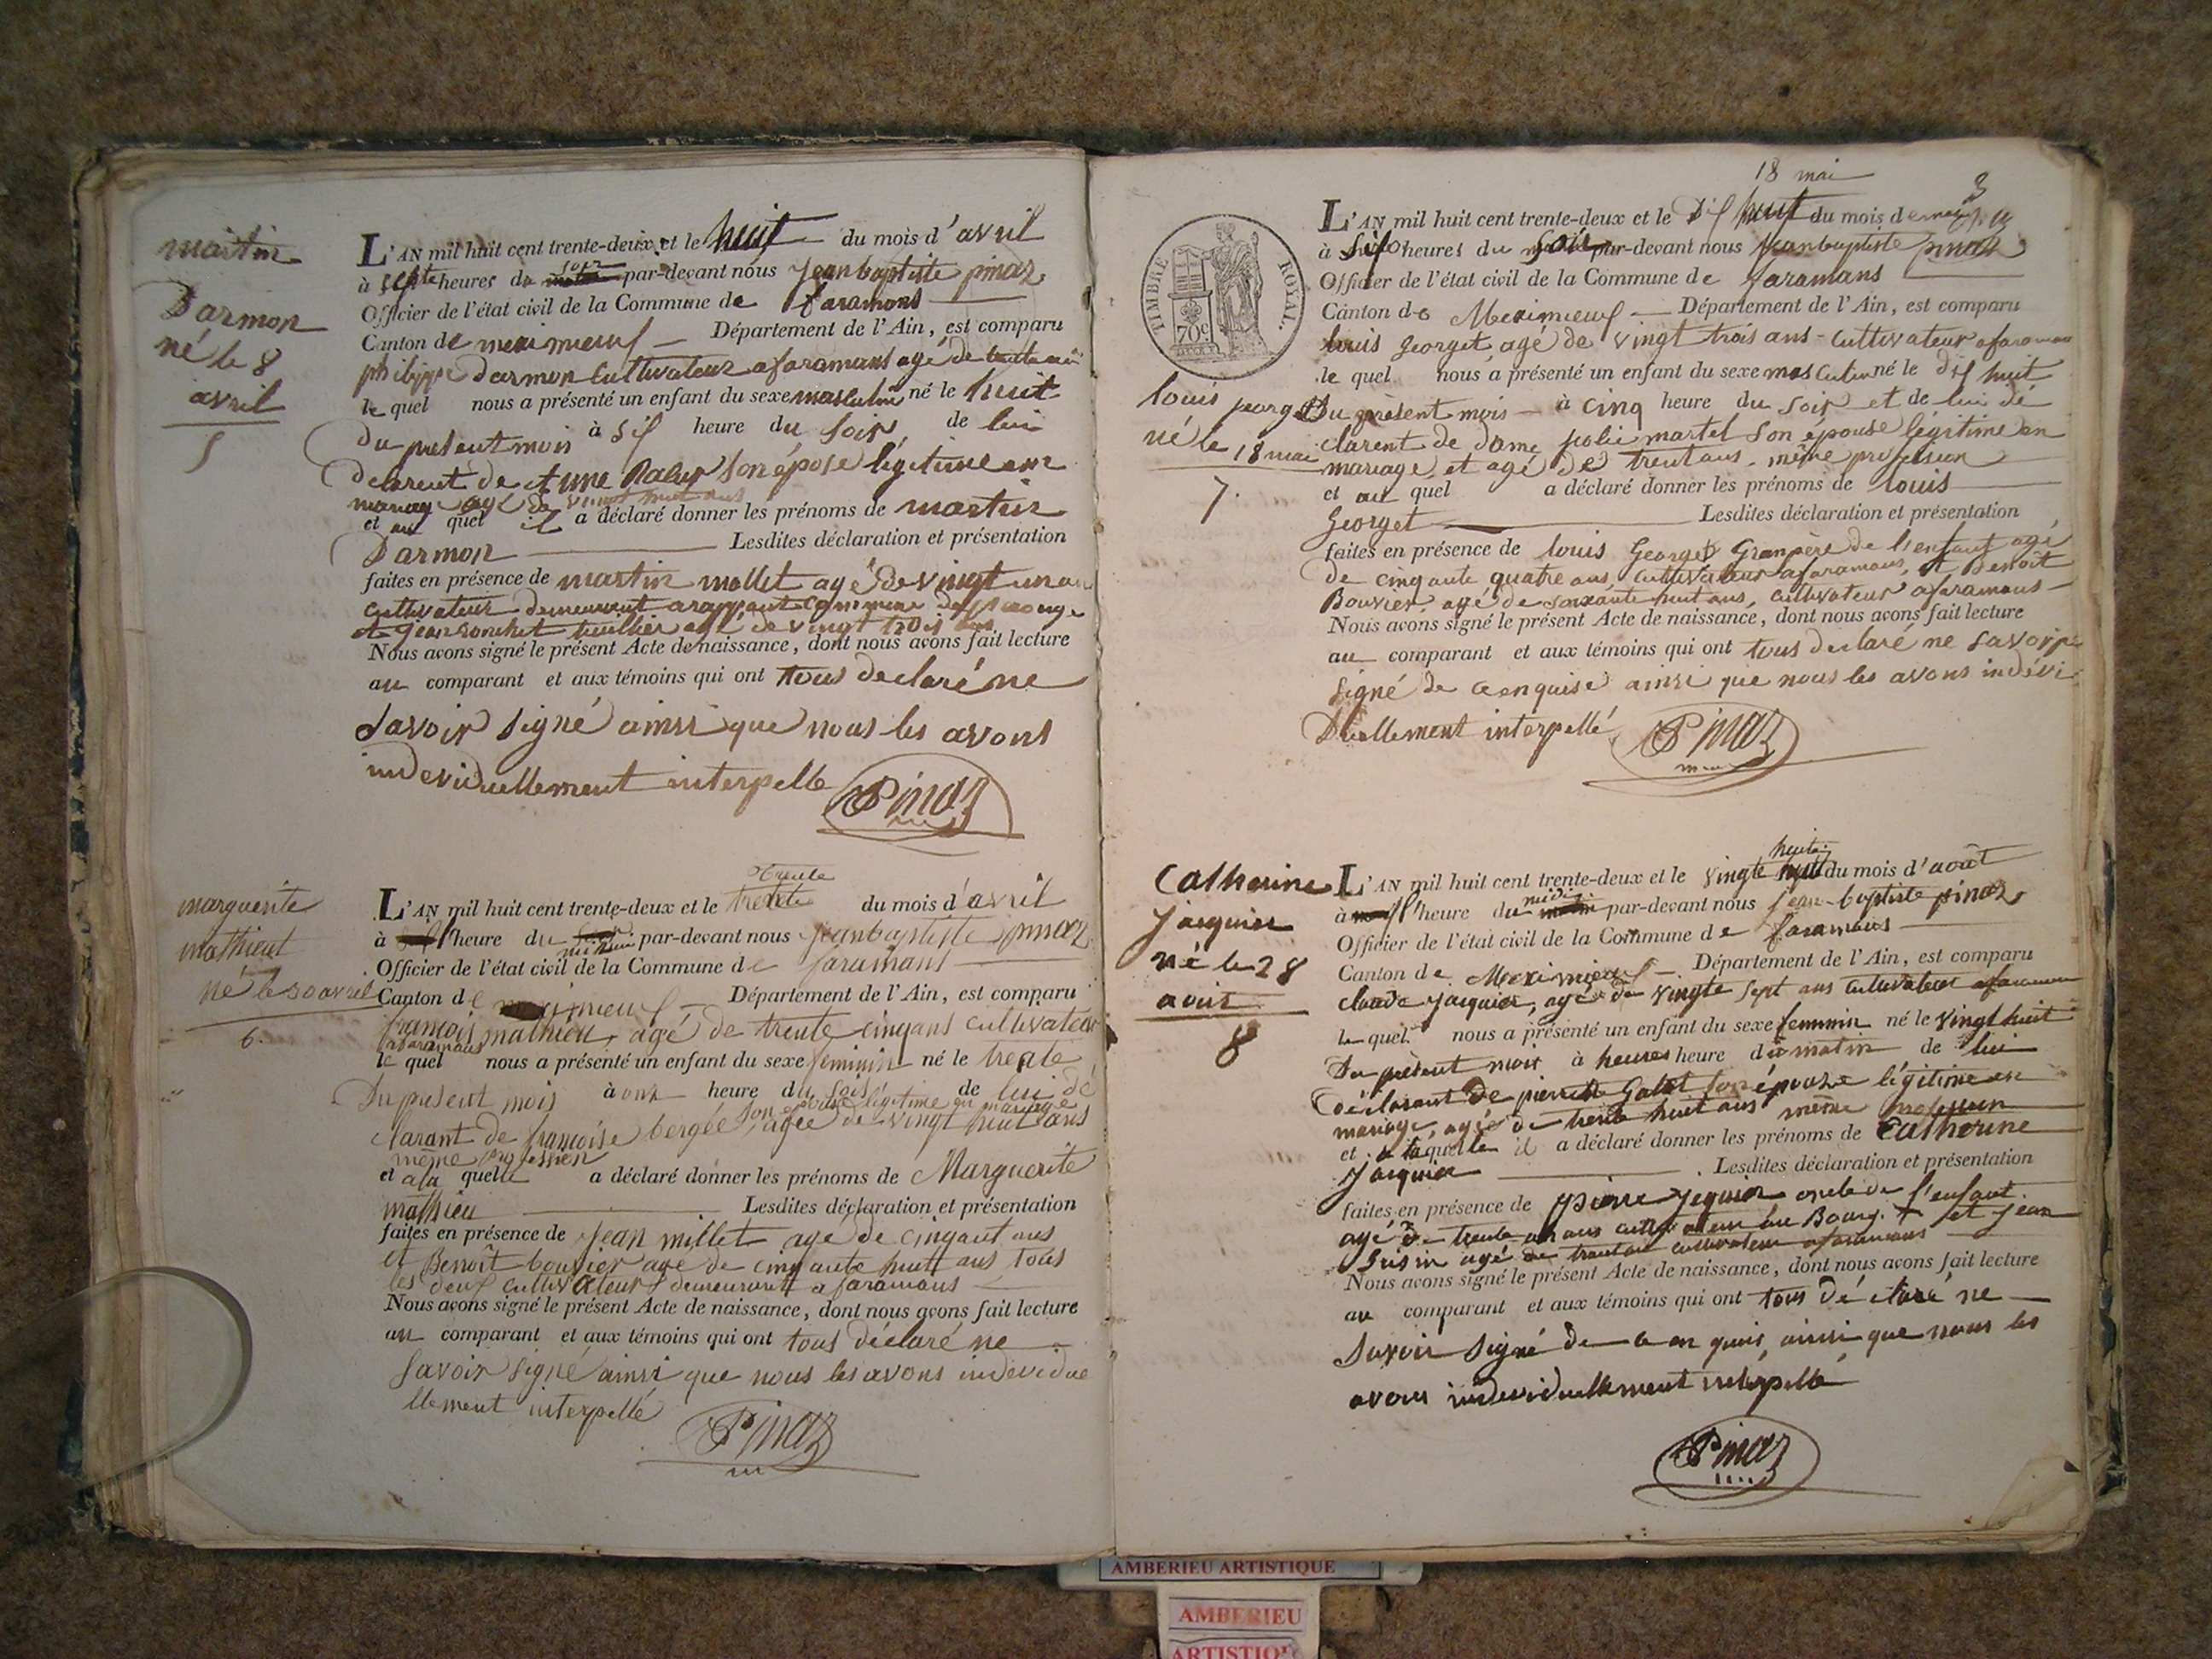 martin
Darmon
né le 8
avril
5
L'AN mil huit cent trente-deux et le huit du mois d'avril
à septe heures du soir par-devant nous Jean baptiste pinaz
Officier de l'état civil de la Commune de faramans
Canton de meximieux Département de l'Ain, est comparu
philippe darmon Cultivateur a faramans agé de
le quel nous a présenté un enfant du sexe masculin né le huit
du present mois à six heure du soir de lui
declarent de son épose légitime en
mariage agé de vingt huit ans
et au quel il a déclaré donner les prénoms de martin
Darmon Lesdites déclaration et présentation
faites en présence de martin mollet agé de vingt un an
cultivateur demeurant commune de
et jean agé de vingt trois ans
Nous avons signé le présent Acte de naissance, dont nous avons fait lecture
au comparant et aux témoins qui ont tous declaré ne
savoir signé ainsi que nous les avons
individuellement interpellé
Pinaz
marguerite
mathieu
né le 30 avril
6.
L'AN mil huit cent trente-deux et le trente du mois d'avril
à heure du par-devant nous Jean baptiste pinaz
Officier de l'état civil de la Commune de faramans
Canton de meximieux Département de l'Ain, est comparu
françois mathieu, agé de trente cinq ans cultivateur
a faramans
le quel nous a présenté un enfant du sexe feminin né le trente
du present mois à onz heure du de lui dé
clarant de françoise bergée, son épouse légitime en mariage agée de vingt huit ans
même profession
et a la quelle a déclaré donner les prénoms de Marguerite
mathieu Lesdites déclaration et présentation
faites en présence de jean millet agé de cinqant ans
et Benoît bouvier agé de cinqante huit ans tous
les deux cultivateur demeurant a faramans
Nous avons signé le présent Acte de naissance, dont nous avons fait lecture
au comparant et aux témoins qui ont tous déclaré ne
savoir signé ainsi que nous les avons individue
llement interpellé
Pinaz
18 mai
3
TIMBRE ROYAL.
70c
louis georget
né le 18 mai
7.
L'AN mil huit cent trente-deux et le dix huit du mois de mai
à six heures du soir par-devant nous Jean baptiste pinaz
Officier de l'état civil de la Commune de faramans
Canton de Meximieux Département de l'Ain, est comparu
louis georget, agé de vingt trois ans cultivateur a faramans
le quel nous a présenté un enfant du sexe masculin né le dix huit
du présent mois à cinq heure du soir et de lui dé
clarent de dame julie martel son épouse légitime en
mariage et agé de trent ans même profession
et au quel a déclaré donner les prénoms de louis
Georget Lesdites déclaration et présentation
faites en présence de louis Georget Granpère de l'enfant agé
de cinqante quatre ans cultivateur a faramans, et Benoît
Bouvier, agé de soixante huit ans, cultivateur a faramans
Nous avons signé le présent Acte de naissance, dont nous avons fait lecture
au comparant et aux témoins qui ont tous declaré ne savoir
signé de ce enquise ainsi que nous les avons indévi
duellement interpellé
Pinaz
Catherine
Jaquier
né le 28
aout
8
L'AN mil huit cent trente-deux et le vingte huite du mois d'août
à heure du midi par-devant nous jean-baptiste pinaz
Officier de l'état civil de la Commune de faramans
Canton de Meximieux Département de l'Ain, est comparu
claude jaquier, agé de vingte sept ans cultivateur a faramans
le quel nous a présenté un enfant du sexe feminin né le vingt huit
du présent mois à heures heure du matin de lui
déclarant de pierrette son épouse légitime en
mariage, agée de trente huit ans même profession
et a laquelle il a déclaré donner les prénoms de Catherine
Jaquier Lesdites déclaration et présentation
faites en présence de pierre jequier oncle de l'enfant
agé de trente ans cultivateur au Bourg. et jean
agé de trent ans cultivateur a faramans
Nous avons signé le présent Acte de naissance, dont nous avons fait lecture
au comparant et aux témoins qui ont tous déclaré ne
savoir signé de ce en quis, ainsi que nous les
avons individuellement interpellé
Pinaz
AMBERIEU ARTISTIQUE
AMBERIEU
ARTISTIQUE